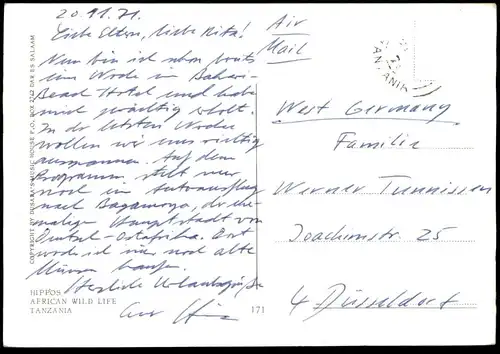 20.11.71.
Liebe Eltern, liebe Rita!
Nun bin ich schon bereits
eine Woche im Bahari
Beach Hotel und habe
mich prächtig erholt.
In der letzten Woche
wollen wir uns richtig
ausspannen. Auf dem
Programm steht nur
noch ein Autoausflug
nach Bagamoyo, der ehe-
malige Hauptstadt von
Deutsch-Ostafrika. Dort
werde ich mir noch alte
Münzen kaufen.
Herzliche Urlaubsgrüße
Euer
Air
Mail
TANZANIA
West Germany
Familie
Werner Tunnissen
Joachimstr. 25
4 Düsseldorf
HIPPOS
AFRICAN WILD LIFE
TANZANIA
171
COPYRIGHT BY MUSIC HOUSE P.O. BOX DAR ES SALAAM